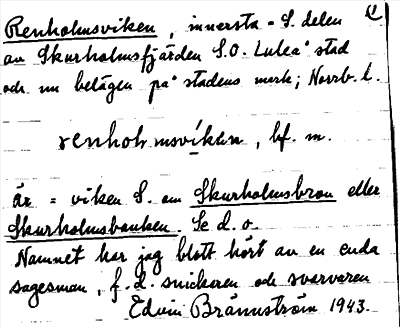 Renholmsviken, innersta - S. delen
av Skurholmsfjärden S.O. Luleå stad
och nu belägen på stadens mark; Norrb. l.
renholmsvíken, bf. m.
är = viken S. om Skurholmsbron eller
Skurholmsbanken. Se d. o.
Namnet har jag blott hört av en enda
sagesman, f. d. snickaren och svarvaren
Edvin Brännström 1943.